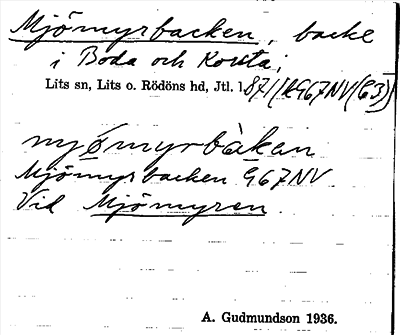 Mjömyrbacken, backe
i Boda och Korsta;
Lits sn, Lits o. Rödöns hd, Jtl. l.
mjǿmyrbàken
Mjömyrbacken G67NV
Vid Mjömyren.
A. Gudmundson 1936.